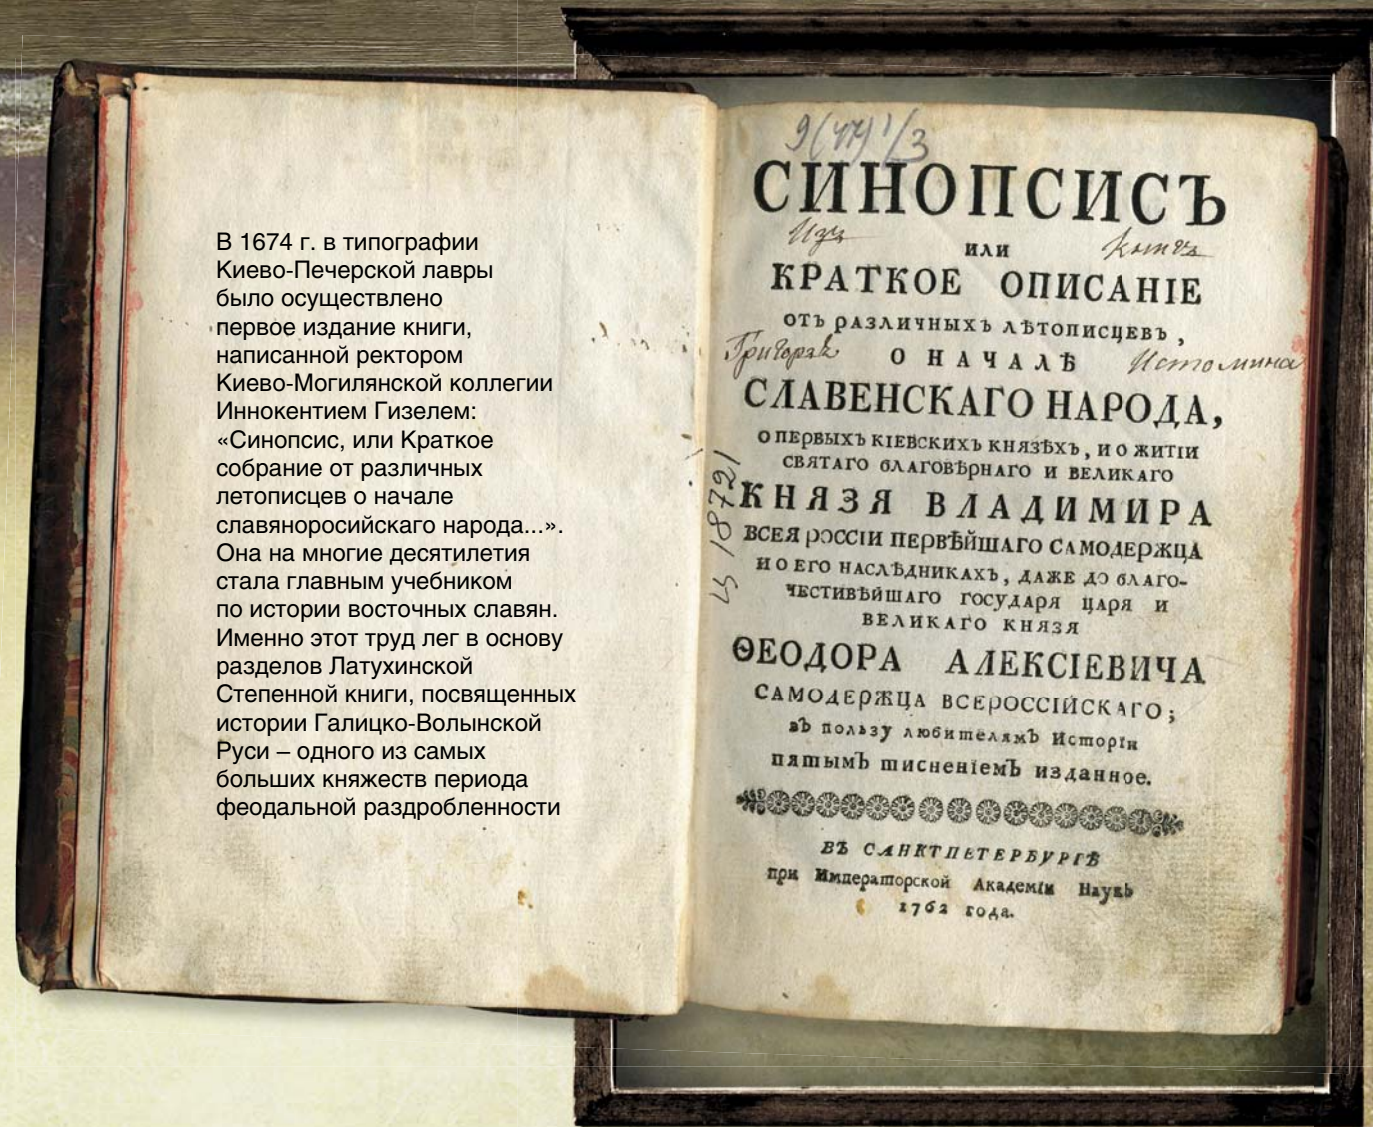 В 1674 г. в типографии
Киево-Печерской лавры
было осуществлено
первое издание книги,
написанной ректором
Киево-Могилянской коллегии
Иннокентием Гизелем:
«Синопсис, или Краткое
собрание от различных
летописцев о начале
славяноросийскаго народа...».
Она на многие десятилетия
стала главным учебником
по истории восточных славян.
Именно этот труд лег в основу
разделов Латухинской
Степенной книги, посвященных
истории Галицко-Волынской
Руси – одного из самых
больших княжеств периода
феодальной раздробленности
СИНОПСИСЪ
Изъ
или
КРАТКОЕ ОПИСАНІЕ
отъ различныхъ лѣтописцевъ,
О НАЧАЛѢ Истомина
СЛАВЕНСКАГО НАРОДА,
о первыхъ кіевскихъ князѣхъ, и о житіи
святаго благовѣрнаго и великаго
КНЯЗЯ ВЛАДИМИРА
всея россіи первѣйшаго самодержца
и о его наслѣдникахъ, даже до благо-
честивѣйшаго государя царя и
великаго князя
ѲЕОДОРА АЛЕКСІЕВИЧА
самодержца всероссійскаго;
въ пользу любителямъ Исторіи
пятымъ тисненіемъ изданное.
ВЪ САНКТПЕТЕРБУРГѢ
при Императорской Академіи Наукъ
1762 года.
18721